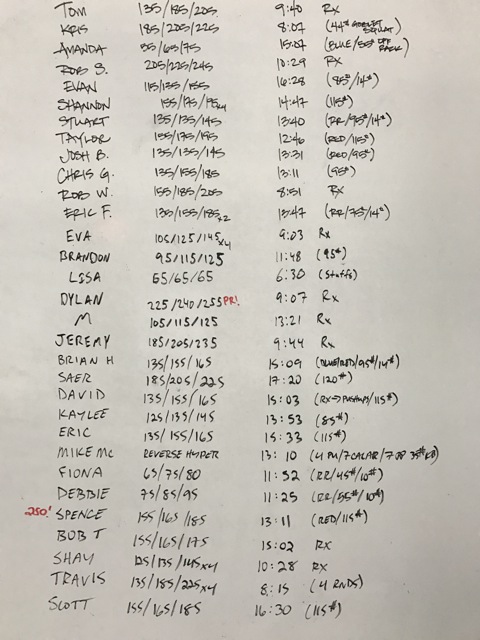 TOM 135/185/205 9:40 Rx
KRIS 185/205/225 8:07 (44# GOBLET SQUAT)
AMANDA 55/65/75 15:07 (BLUE/55# OFF RACK)
ROB S. 205/225/245 10:29 Rx
EVAN 115/135/155 16:28 (85#/14#)
SHANNON 155/175/195x4 14:47 (115#)
STUART 135/135/145 13:40 (RR/95#/14#)
TAYLOR 155/175/195 12:46 (RED/115#)
JOSH B. 135/135/145 13:31 (RED/95#)
CHRIS G. 135/155/185 13:11 (95#)
ROB W. 155/185/205 8:51 Rx
ERIC F. 135/155/185x2 13:47 (RR/75/14#)
EVA 105/125/145x4 9:03 Rx
BRANDON 95/115/125 11:48 (95#)
LISA 65/65/65 6:30 (Stuffs)
DYLAN 225/240/255 PR! 9:07 Rx
M 105/115/125 13:21 Rx
JEREMY 185/205/235 9:44 Rx
BRIAN H 135/155/165 15:09 (BLUE/RED/95#/14#)
SAER 185/205/225 17:20 (120#)
DAVID 135/155/165 15:03 (RX→PUSHUPS/115#)
KAYLEE 125/135/145 13:53 (85#)
ERIC 135/155/165 15:33 (115#)
MIKE MC REVERSE HYPER 13:10 (4 PU/7CALAR/7 DB 35# KB)
FIONA 65/75/80 11:52 (RR/45#/10#)
DEBBIE 75/85/95 11:25 (RR/55#/10#)
250! SPENCE 155/165/185 13:11 (RED/115#)
BOB T 155/165/175 15:02 RX
SHAY 125/135/145x4 10:28 RX
TRAVIS 135/185/225x4 8:15 (4 RNDS)
SCOTT 155/165/185 16:30 (115#)